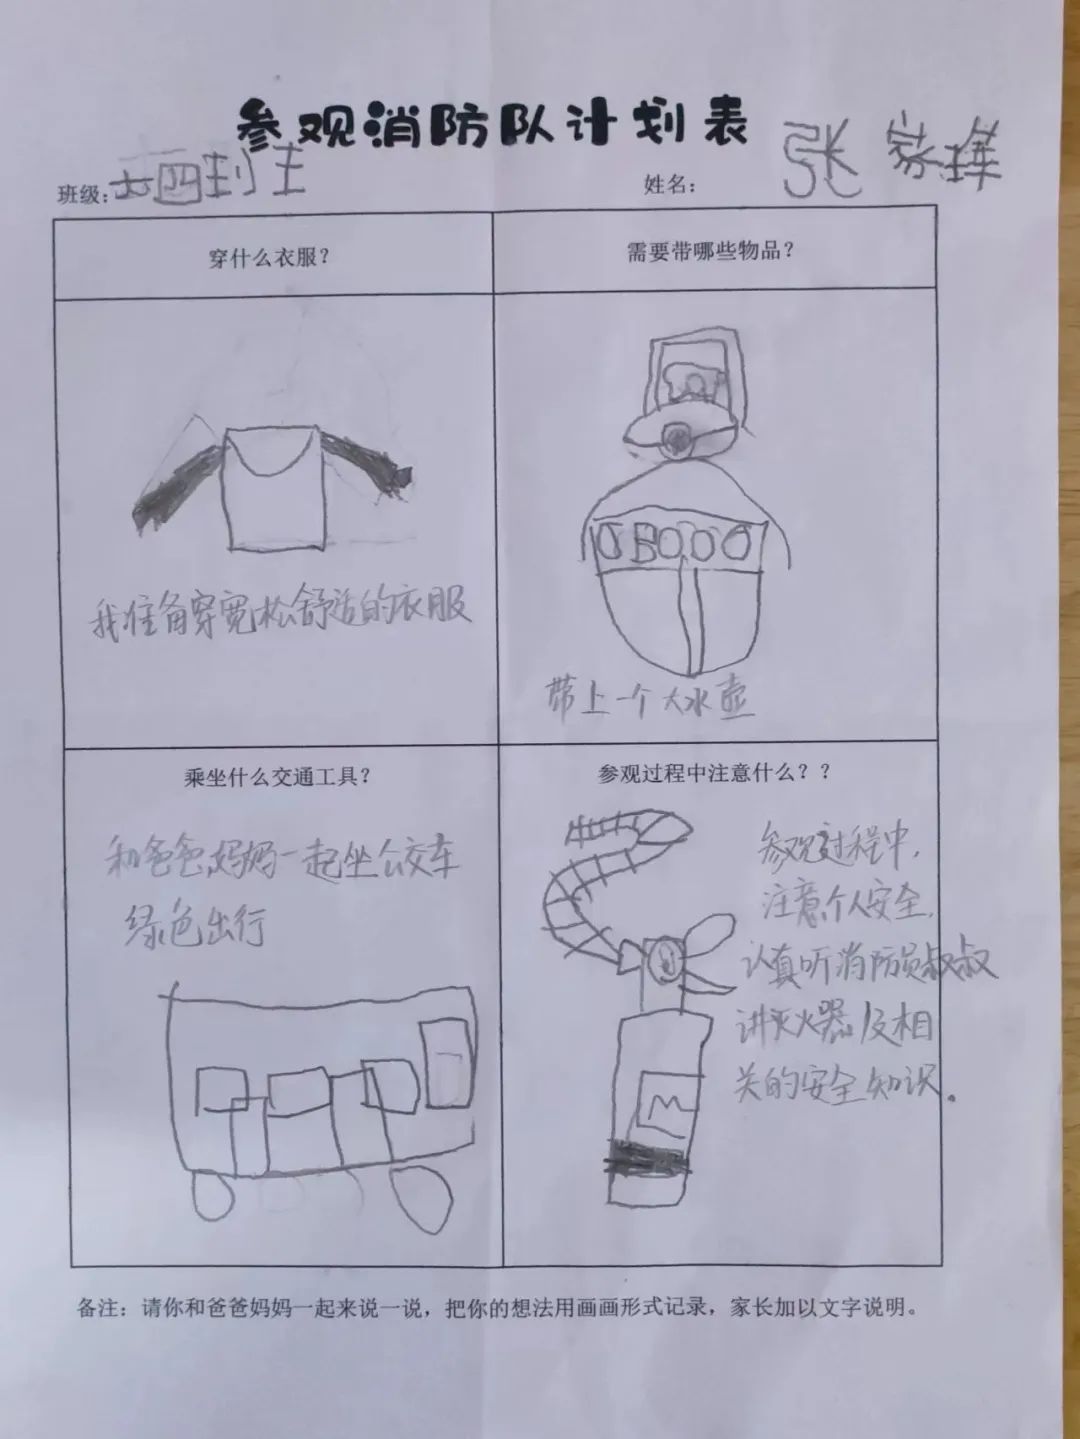 参观消防队计划表
班级：大四班
姓名：张家
穿什么衣服？
需要带哪些物品？
我准备穿宽松舒适的衣服
带上一个大水壶
乘坐什么交通工具？
和爸爸妈妈一起坐公交车
绿色出行
参观过程中注意什么？？
参观过程中，
注意个人安全，
认真听消防员叔叔
讲灭火器及相
关的安全知识。
M
备注：请你和爸爸妈妈一起来说一说，把你的想法用画画形式记录，家长加以文字说明。